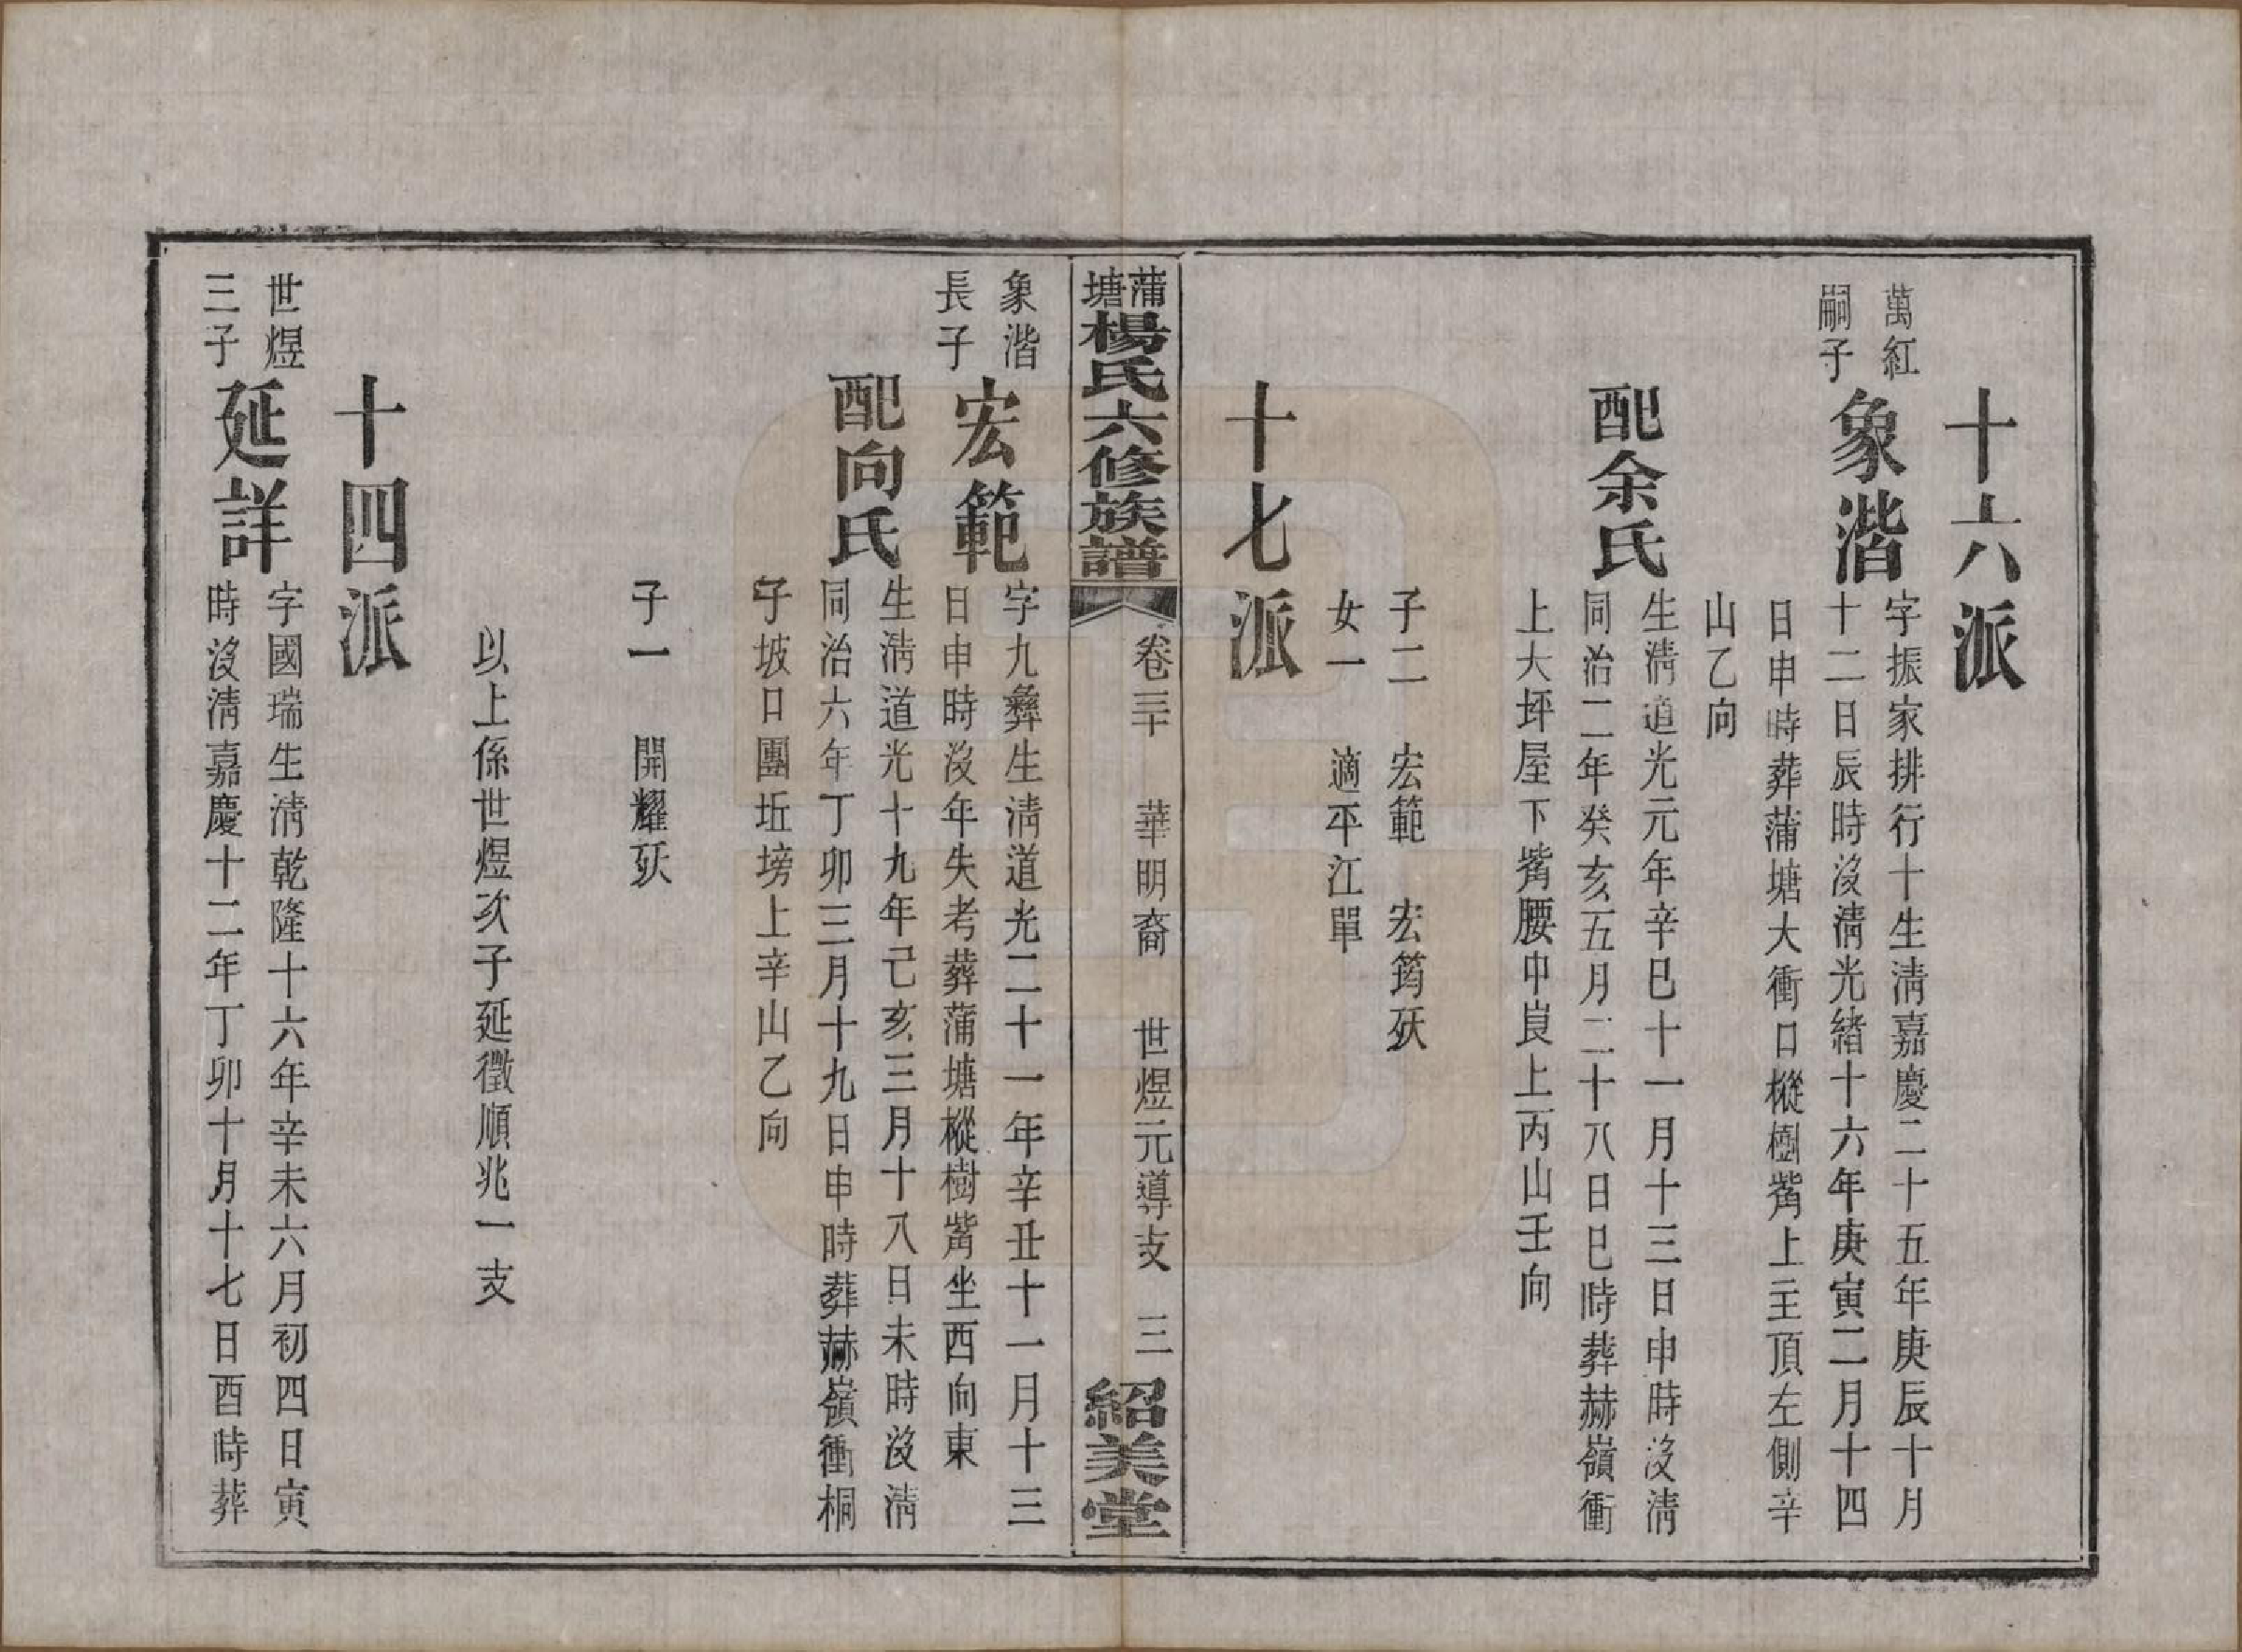 十六派
萬紅
嗣子
象湝
字振家排行十生淸嘉慶二十五年庚辰十月
十二日辰時沒淸光緒十六年庚寅二月十四
日申時葬蒲塘大衝口樅樹觜上主頂左側辛
山乙向
配余氏
生淸道光元年辛巳十一月十三日申時沒淸
同治二年癸亥五月二十八日巳時葬赫嶺衝
上大坪屋下觜腰中崀上丙山壬向
子二　宏範　宏筠殀
女一　適平江單
十七派
蒲塘楊氏六修族譜
卷三十　華明裔　世煜元導支　三
紹美堂
象湝
長子
宏範
字九彝生淸道光二十一年辛丑十一月十三
日申時沒年失考葬蒲塘樅樹觜坐西向東
配向氏
生淸道光十九年己亥三月十八日未時沒淸
同治六年丁卯三月十九日申時葬赫嶺衝桐
子坡口團坵塝上辛山乙向
子一　開耀殀
以上係世煜次子延徵順兆一支
十四派
世煜
三子
延詳
字國瑞生淸乾隆十六年辛未六月初四日寅
時沒淸嘉慶十二年丁卯十月十七日酉時葬